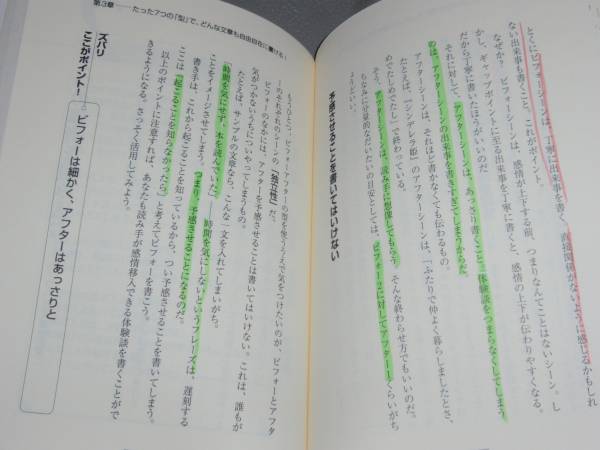 とくにビフォーシーンは、丁寧に出来事を書く。直接関係がないように感じるかもしれ
ない出来事を書くこと、これがポイント。
なぜか？　ビフォーシーンは、感情が上下する前、つまりなんてことはないシーン。し
かし、ギャップポイントに至る出来事を丁寧に書くと、感情の上下が伝わりやすくなる。
だから丁寧に書いたほうがいいのだ。
それに対して、アフターシーンは、あっさり書くこと。体験談をつまらなくしてしまう
のは、アフターシーンの出来事を書きすぎてしまうからだ。
アフターシーンは、それほど書かなくても伝わるもの。
たとえば、『シンデレラ姫』のアフターシーンは、「ふたりで仲よく暮らしましたとさ、
めでたしめでたし」で終わっている。
そう、アフターシーンは、読み手に想像してもらう。そんな終わらせ方でもいいのだ。
ちなみに分量的なだいたいの目安としては、ビフォー2に対してアフター1くらいがち
ょうどいい。
予感させることを書いてはいけない
もうひとつ、ビフォーアフターの型を使ううえで気をつけたいのが、ビフォーとアフタ
ーのそれぞれのシーンの「独立性」だ。
ビフォーのなかには、アフターを予感させることは書いてはいけない。これは、誰もが
気がつかないうちについやってしまうもの。
たとえば、サンプルの文章なら、こんな一文を入れてしまいがち。
「時間を気にせず、本を読んでいた」──時間を気にしないというフレーズは、遅刻する
ことをイメージさせてしまう。つまり、予感させることになるのだ。
書き手は、これから起こることを知っているから、つい予感させることを書いてしまう。
ここは「起こることを知らなかったら」と考えてビフォーを書こう。
以上のポイントに注意すれば、あなたも読み手が感情移入できる体験談を書くことがで
きるようになる。さっそく活用してみよう。
ズバリ
ここがポイント！
ビフォーは細かく、アフターはあっさりと
第3章──たった7つの「型」で、どんな文章も自由自在に書ける！